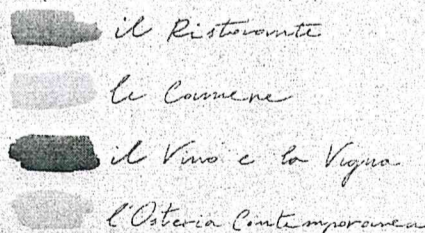 il Ristorante
le Camere
il Vino e la Vigna
l'Osteria Contemporanea